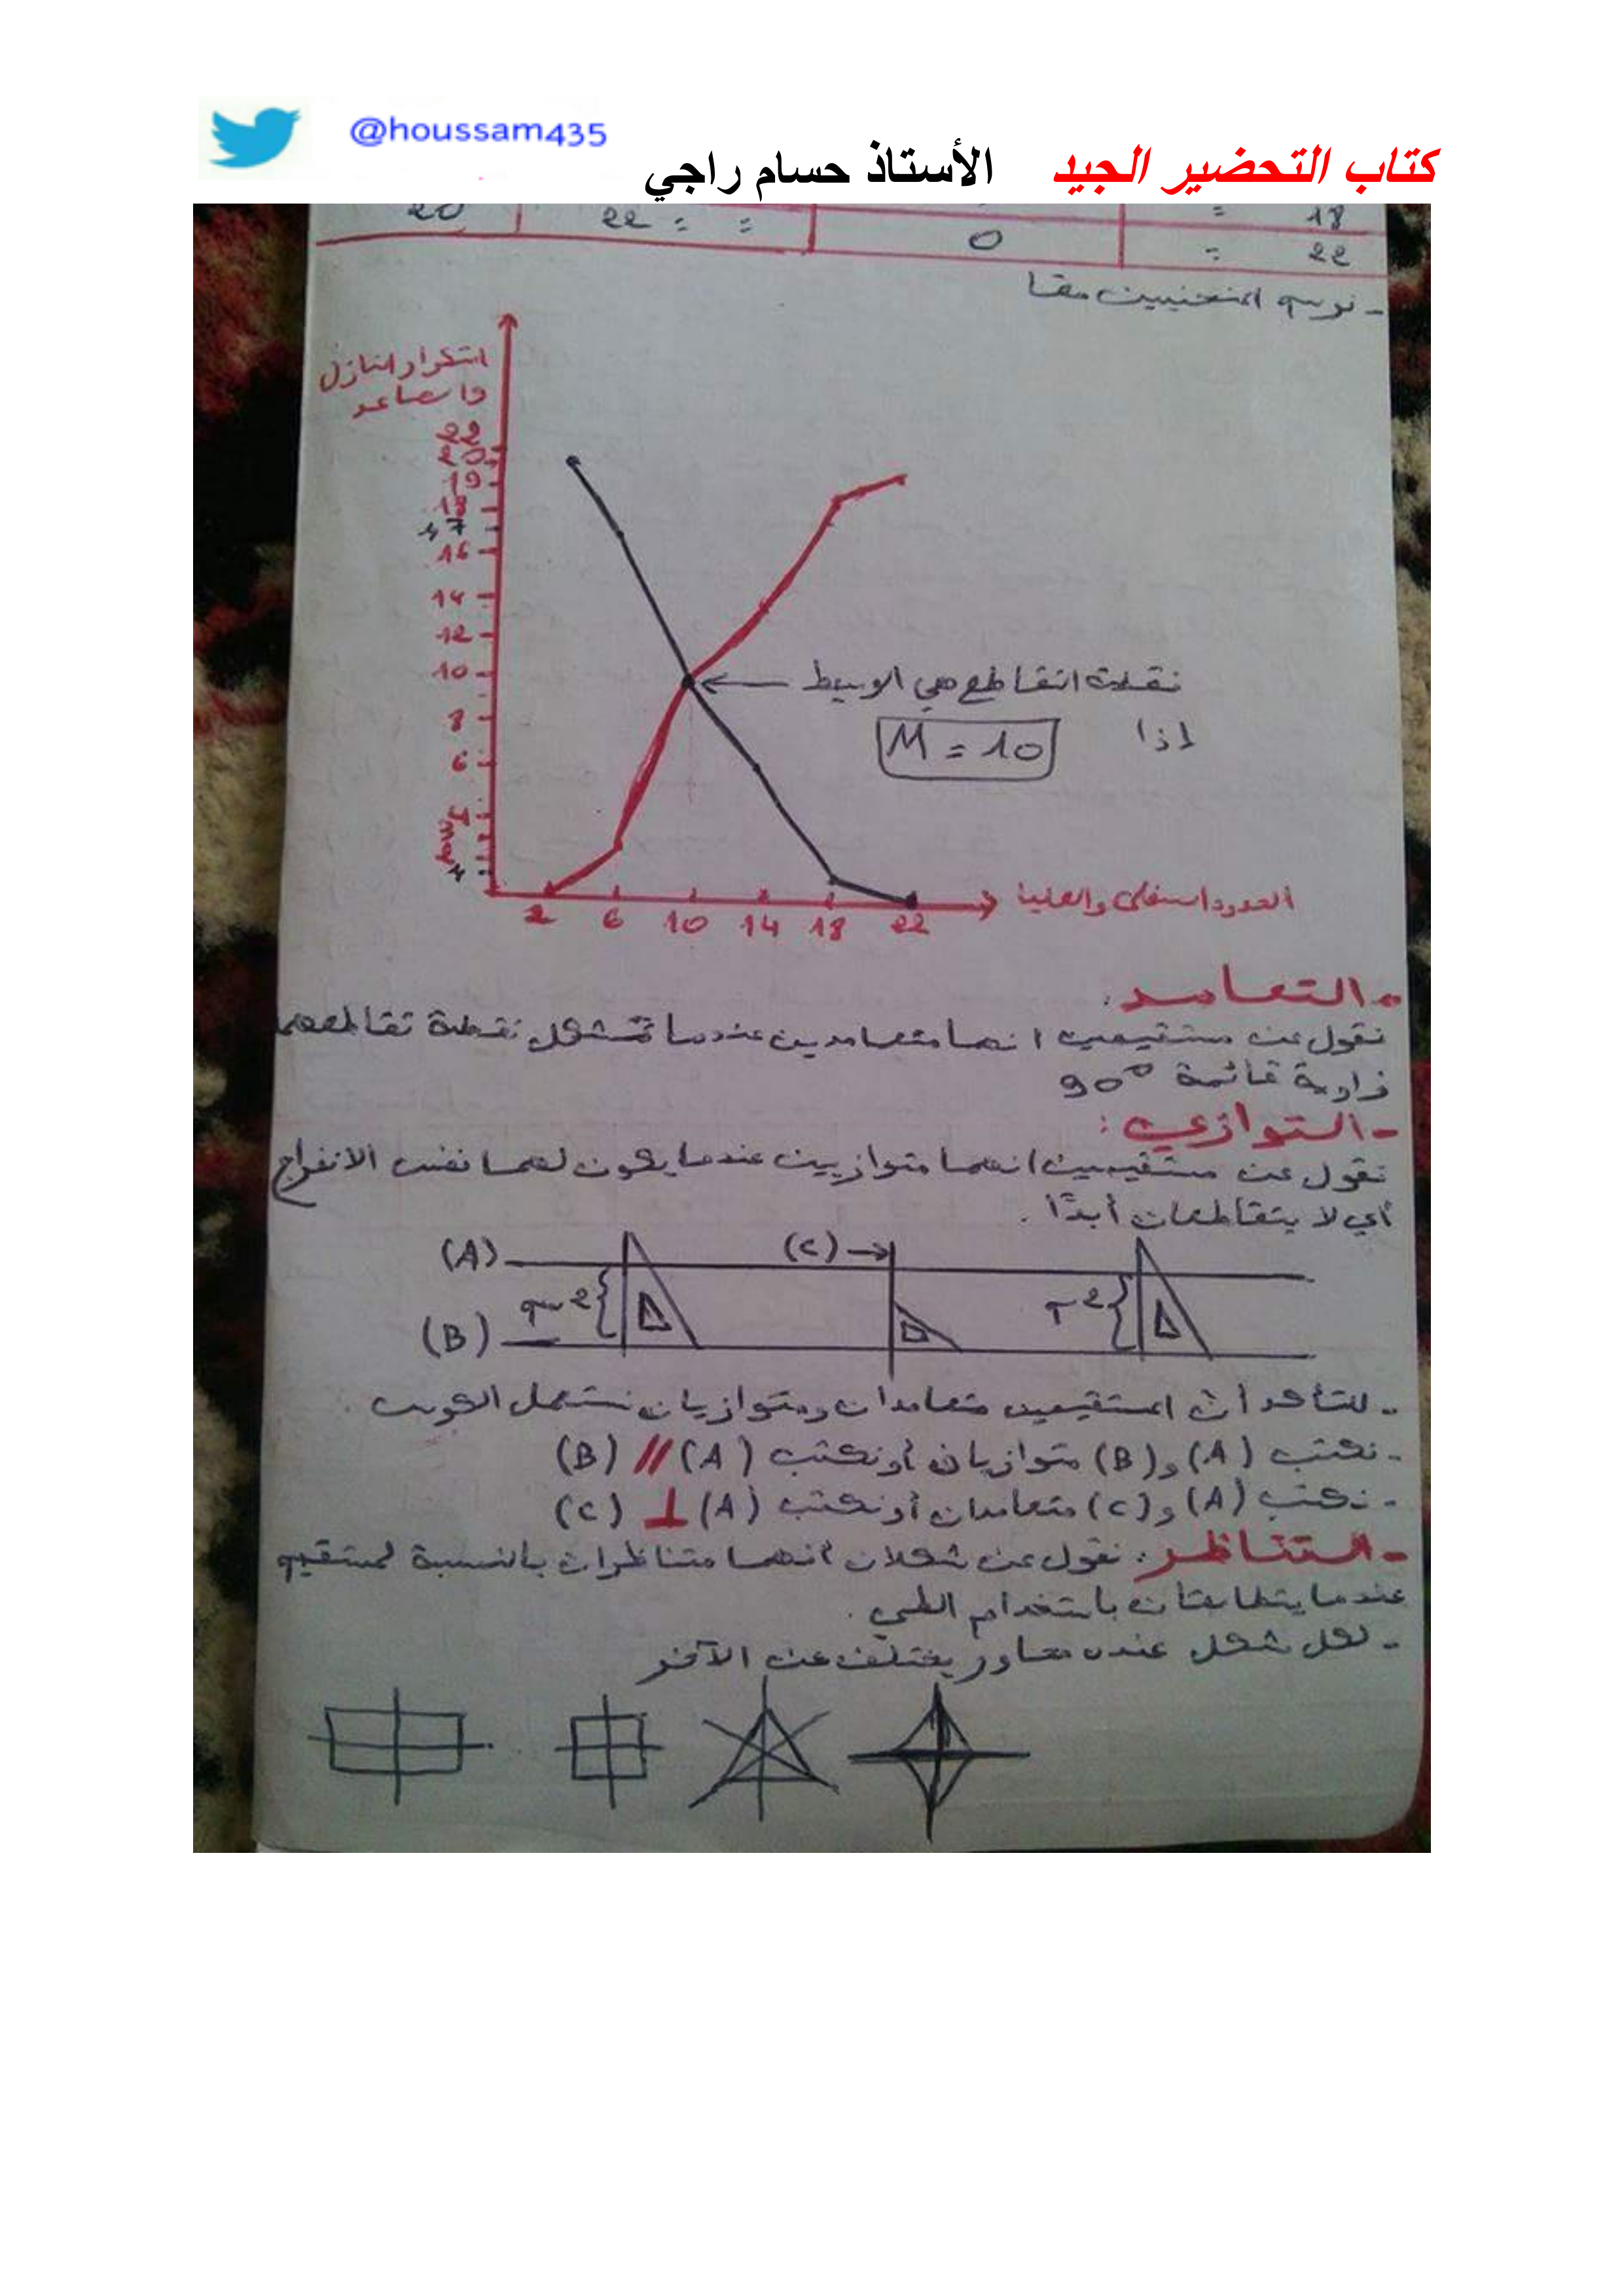 @houssam435
كتاب التحضير الجيد الأستاذ حسام راجي
18 = 22 = = 20
22 = 0
- نرسم المنحنيين معا
التكرار النازل
والصاعد
22
20
19
18
17
16
14
12
10
8
6
4
3
2
1
نقطة التقاطع هي الوسيط
إذا M = 10
2 6 10 14 18 22
الحدود السفلى والعليا
- التعامد:
نقول عن مستقيمين انهما متعامدين عندما تشكل نقطة تقاطعهما
زاوية قائمة 90°
- التوازي:
نقول عن مستقيمين انهما متوازيين عندما يكون لهما نفس الانفراج
أي لا يتقاطعان أبدًا.
(A) (C)
(B)
- للتأكد أن المستقيمين متعامدان ومتوازيان نستعمل الكوس.
- نكتب (A) و (B) متوازيان أو نكتب (A) // (B)
- نكتب (A) و (C) متعامدان أو نكتب (A) ⊥ (C)
- التناظر: نقول عن شكلان انهما متناظران بالنسبة لمستقيم
عندما يتطابقان باستخدام الطي.
- لكل شكل عنده محاور يختلف عن الآخر